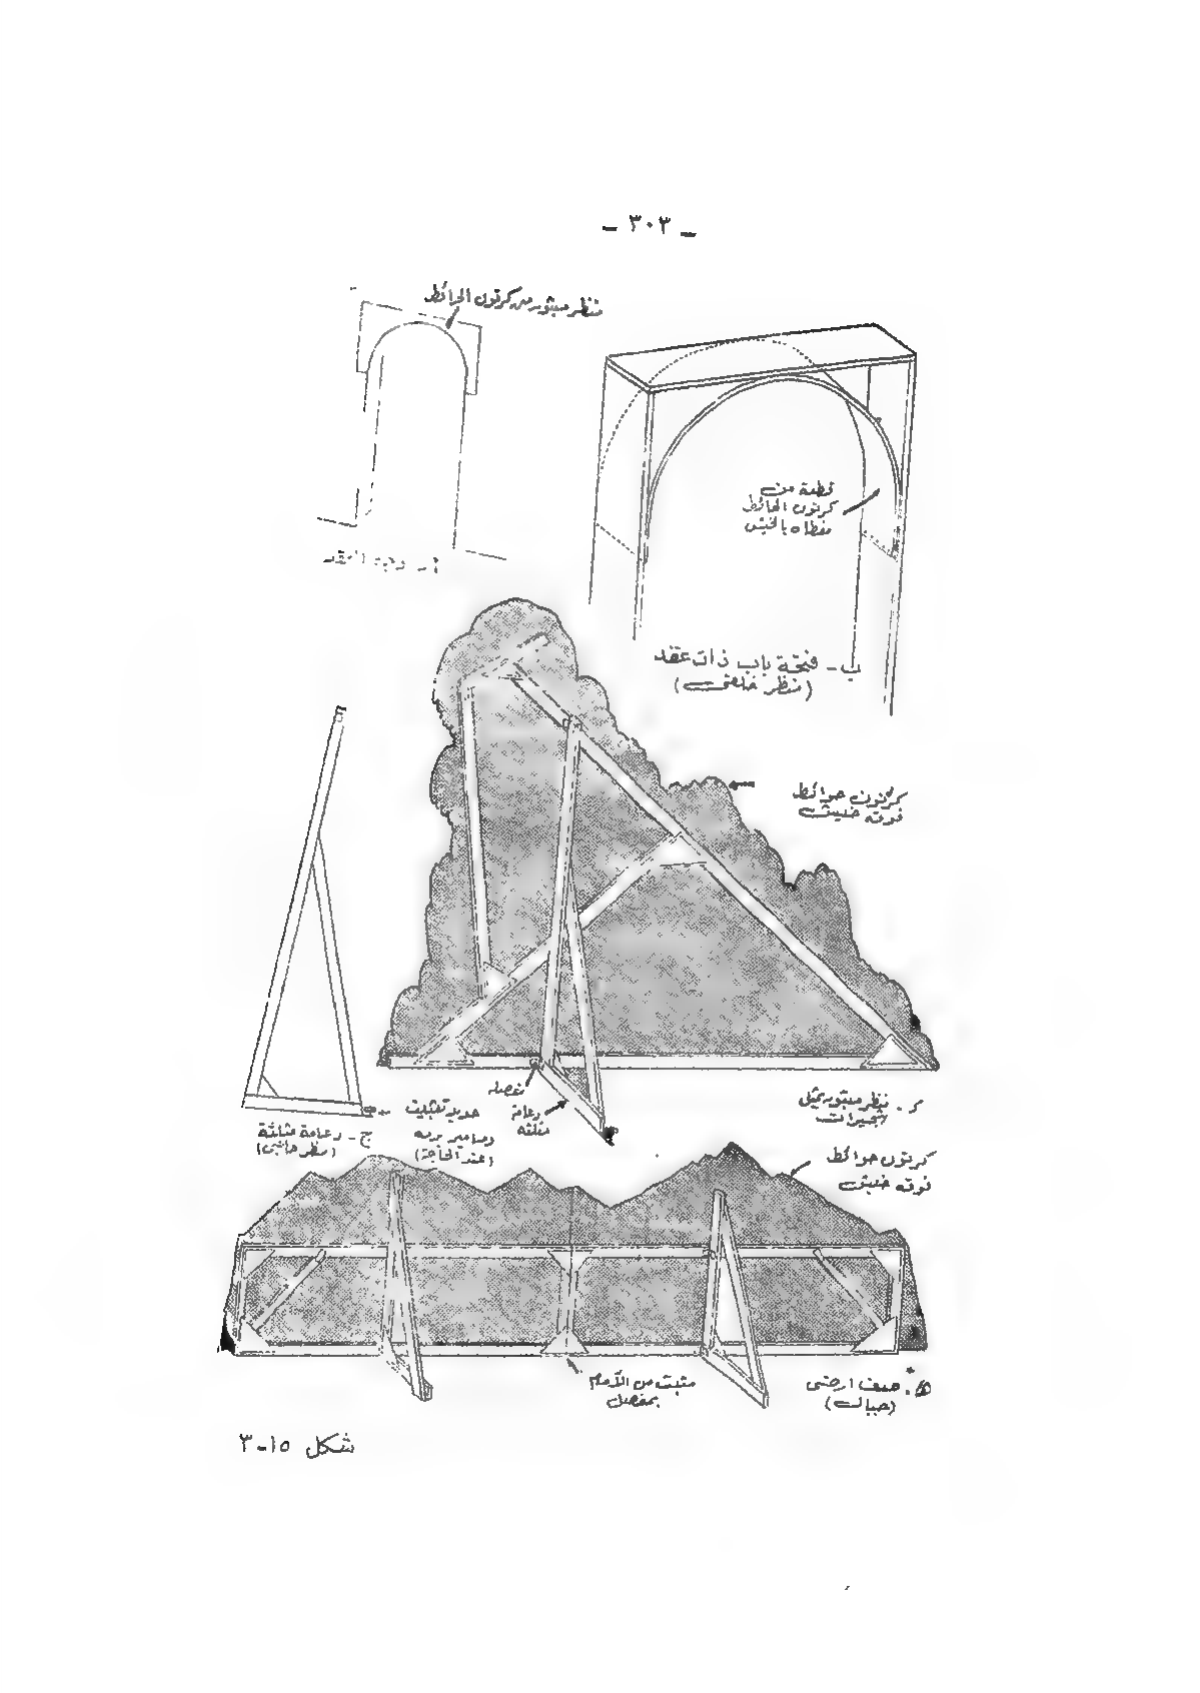 – ٣٠٣ –
منظر مبتور من كرتون الحائط
قطعة من
كرتون الحائط
مغطاه بالخيش
أ –
ب – فتحة باب ذات عقد
(منظر خلفى)
كرتون حوائط
فوقه خيش
مفصله
دعامة
مثلثه
حديد تثبيت
(عند الحاجة)
ج – دعامة مثلثة
(منظر جانبى)
منظر مبتور يمثل
شجيرات
كرتون حوائط
فوقه خيش
مثبت من الأمام
بمفصل
صف ارضى
(جبال)
شكل ١٥-٣